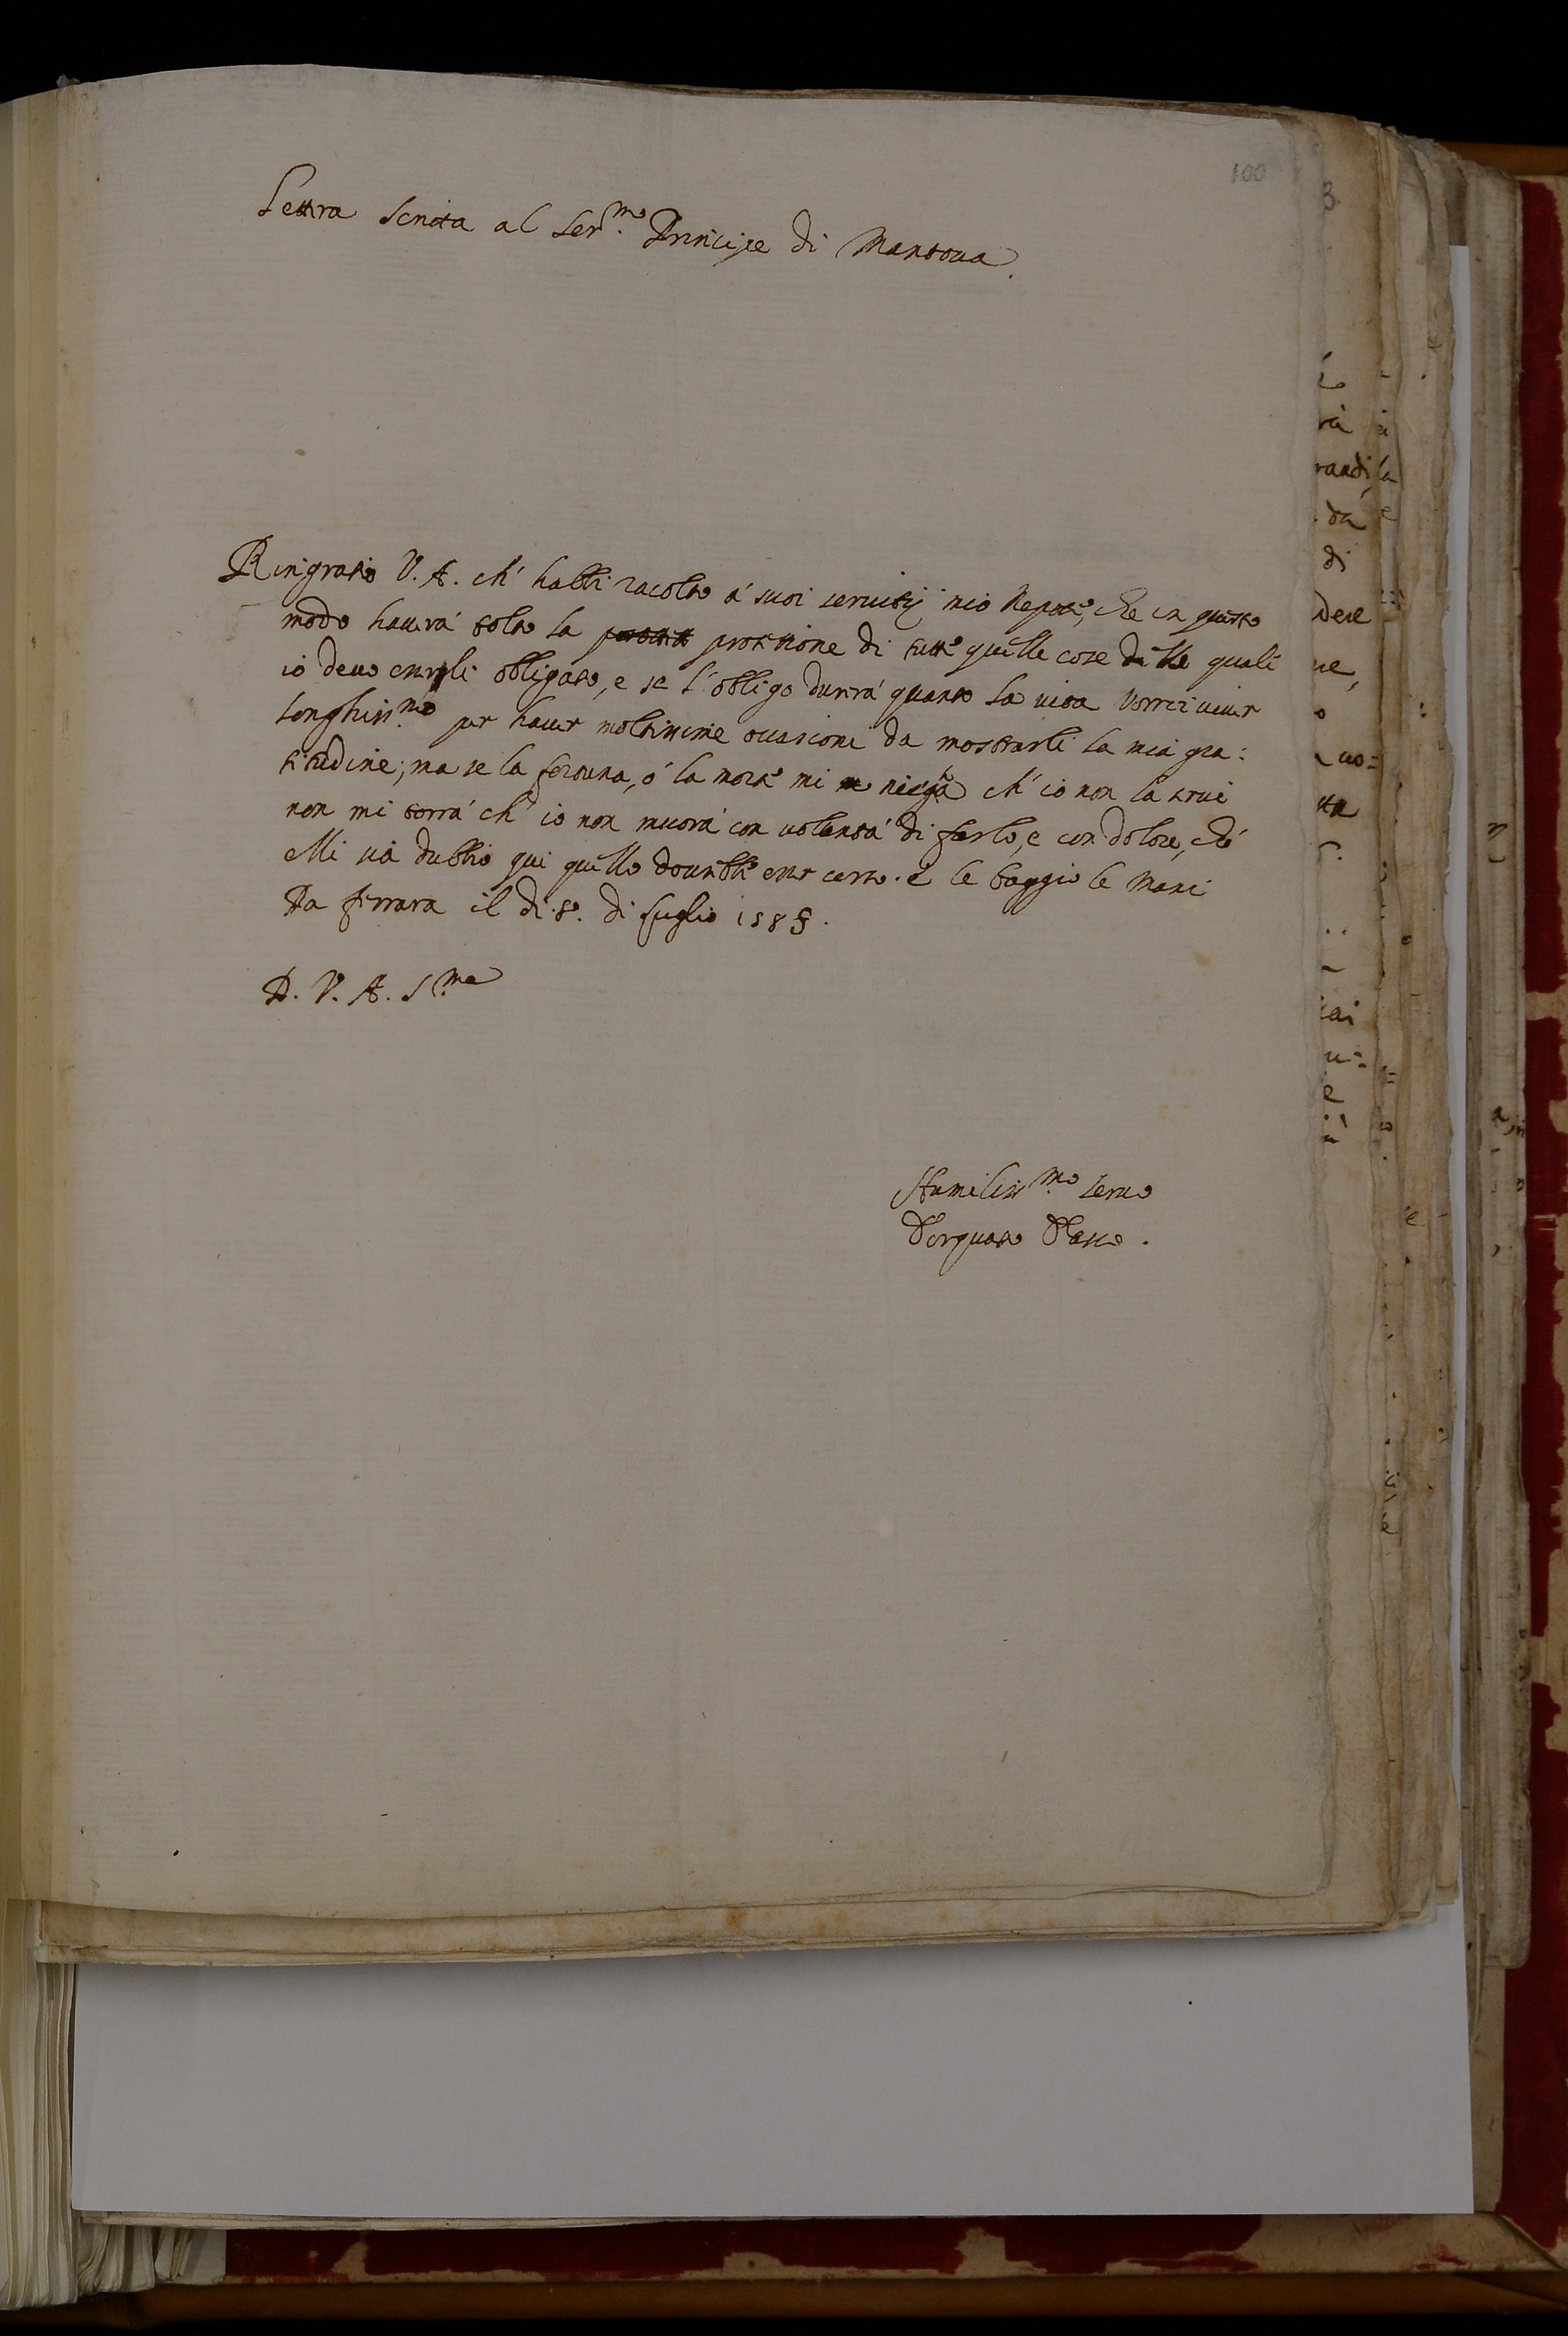 100
Lettera scritta al Ser.mo Principe di Mantova.
Ringratio V. A. ch' habbi racolto a' suoi servitij mio Nepote, che in questo
modo haverà tolto la protettione di tutte quelle cose delle quali
io devo esserli obligato, e se l'obligo durerà quanto la vita vorrei viver
longhiss.mo per haver moltissime occasioni da mostrarli la mia gra:
titudine; ma se la fortuna, ó la morte mi niegha ch' io non la
non mi torrà ch' io non muora con volontà di farlo, e con dolore, che
Mi sia dubbio qui quello dovrebbe esser certo. e le baggio le Mani
Da Ferrara il dì 8. di Luglio 1585.
D. V. A. S.ma
Humiliss.mo Servo
Torquato Tasso.